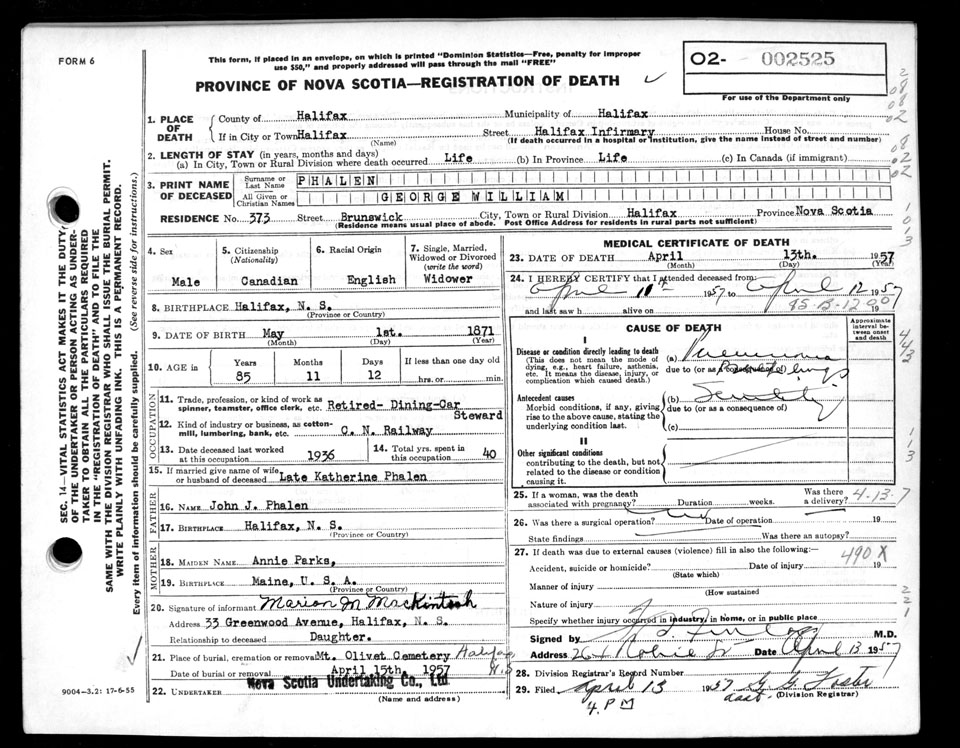 FORM 6
This form, if placed in an envelope, on which is printed "Dominion Statistics—Free, penalty for improper
use $50," and properly addressed will pass through the mail "FREE"
PROVINCE OF NOVA SCOTIA—REGISTRATION OF DEATH
O2- 002525
For use of the Department only
1. PLACE OF DEATH
County of Halifax Municipality of Halifax
If in City or Town Halifax Street Halifax Infirmary House No.
(Name) (If death occurred in a hospital or institution, give the name instead of street and number)
2. LENGTH OF STAY (in years, months and days)
(a) In City, Town or Rural Division where death occurred Life (b) In Province Life (c) In Canada (if immigrant)
3. PRINT NAME OF DECEASED
Surname or Last Name PHALEN
All Given or Christian Names GEORGE WILLIAM
RESIDENCE No. 373 Street Brunswick City, Town or Rural Division Halifax Province Nova Scotia
(Residence means usual place of abode. Post Office Address for residents in rural parts not sufficient)
4. Sex
Male
5. Citizenship (Nationality)
Canadian
6. Racial Origin
English
7. Single, Married, Widowed or Divorced (write the word)
Widower
8. BIRTHPLACE Halifax, N. S.
(Province or Country)
9. DATE OF BIRTH May 1st. 1871
(Month) (Day) (Year)
10. AGE in Years Months Days If less than one day old
85 11 12 hrs. or min.
OCCUPATION
11. Trade, profession, or kind of work as
spinner, teamster, office clerk, etc. Retired- Dining-Car
Steward
12. Kind of industry or business, as cotton-
mill, lumbering, bank, etc. C. N. Railway
13. Date deceased last worked
at this occupation 1936
14. Total yrs. spent in
this occupation 40
15. If married give name of wife
or husband of deceased Late Katherine Phalen
FATHER
16. NAME John J. Phalen
17. BIRTHPLACE Halifax, N. S.
(Province or Country)
MOTHER
18. MAIDEN NAME Annie Parks,
19. BIRTHPLACE Maine, U. S. A.
(Province or Country)
20. Signature of informant Marion M MacKintosh
Address 33 Greenwood Avenue, Halifax, N. S.
Relationship to deceased Daughter.
21. Place of burial, cremation or removal Mt. Olivet Cemetery Halifax
N.S
Date of burial or removal April 15th. 1957
22. UNDERTAKER Nova Scotia Undertaking Co., Ltd
(Name and address)
MEDICAL CERTIFICATE OF DEATH
23. DATE OF DEATH April 13th. 1957
(Month) (Day) (Year)
24. I HEREBY CERTIFY that I attended deceased from
April 11th 1957 to April 12 1957
and last saw h alive on 19
CAUSE OF DEATH
Approximate interval between onset and death
I
Disease or condition directly leading to death
(This does not mean the mode of
dying, e.g., heart failure, asthenia,
etc. It means the disease, injury, or
complication which caused death.)
(a) Pneumonia
due to (or as a consequence of)
Antecedent causes
Morbid conditions, if any, giving
rise to the above cause, stating the
underlying condition last.
(b) Senility
due to (or as a consequence of)
(c)
II
Other significant conditions
contributing to the death, but not
related to the disease or condition
causing it.
25. If a woman, was the death
associated with pregnancy? Duration weeks. Was there
a delivery?
4-13-7
26. Was there a surgical operation? Date of operation 19
State findings Was there an autopsy?
27. If death was due to external causes (violence) fill in also the following:
490 X
Accident, suicide or homicide? Date of injury 19
(State which)
Manner of injury
(How sustained
Nature of injury
Specify whether injury occurred in industry, in home, or in public place
Signed by M.D.
Address Robie St Date April 13 1957
28. Division Registrar's Record Number
29. Filed April 13 1957 G. G. Foster
4. P M asst. (Division Registrar)
SEC. 14—VITAL STATISTICS ACT MAKES IT THE DUTY
OF THE UNDERTAKER OR PERSON ACTING AS UNDER-
TAKER TO OBTAIN ALL THE PARTICULARS REQUIRED
IN THE "REGISTRATION OF DEATH" AND TO FILE THE
SAME WITH THE DIVISION REGISTRAR WHO SHALL ISSUE THE BURIAL PERMIT.
WRITE PLAINLY WITH UNFADING INK. THIS IS A PERMANENT RECORD.
Every item of information should be carefully supplied. (See reverse side for instructions.)
9004—3.2: 17-6-55